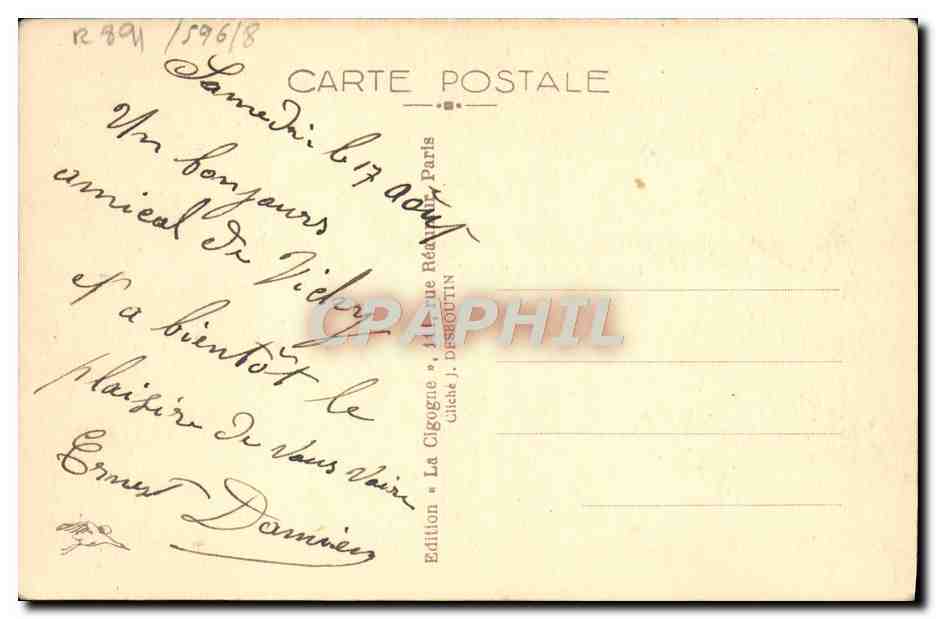 R 891 /596/8
CARTE POSTALE
Samedi. le 17 août
Un bonjours
amical de Vichy
et a bientôt le
plaisire de vous voire
Ernest Damien
Edition « La Cigogne », 111, rue Réaumur, Paris
Cliché J. DESBOUTIN
CPAPHIL